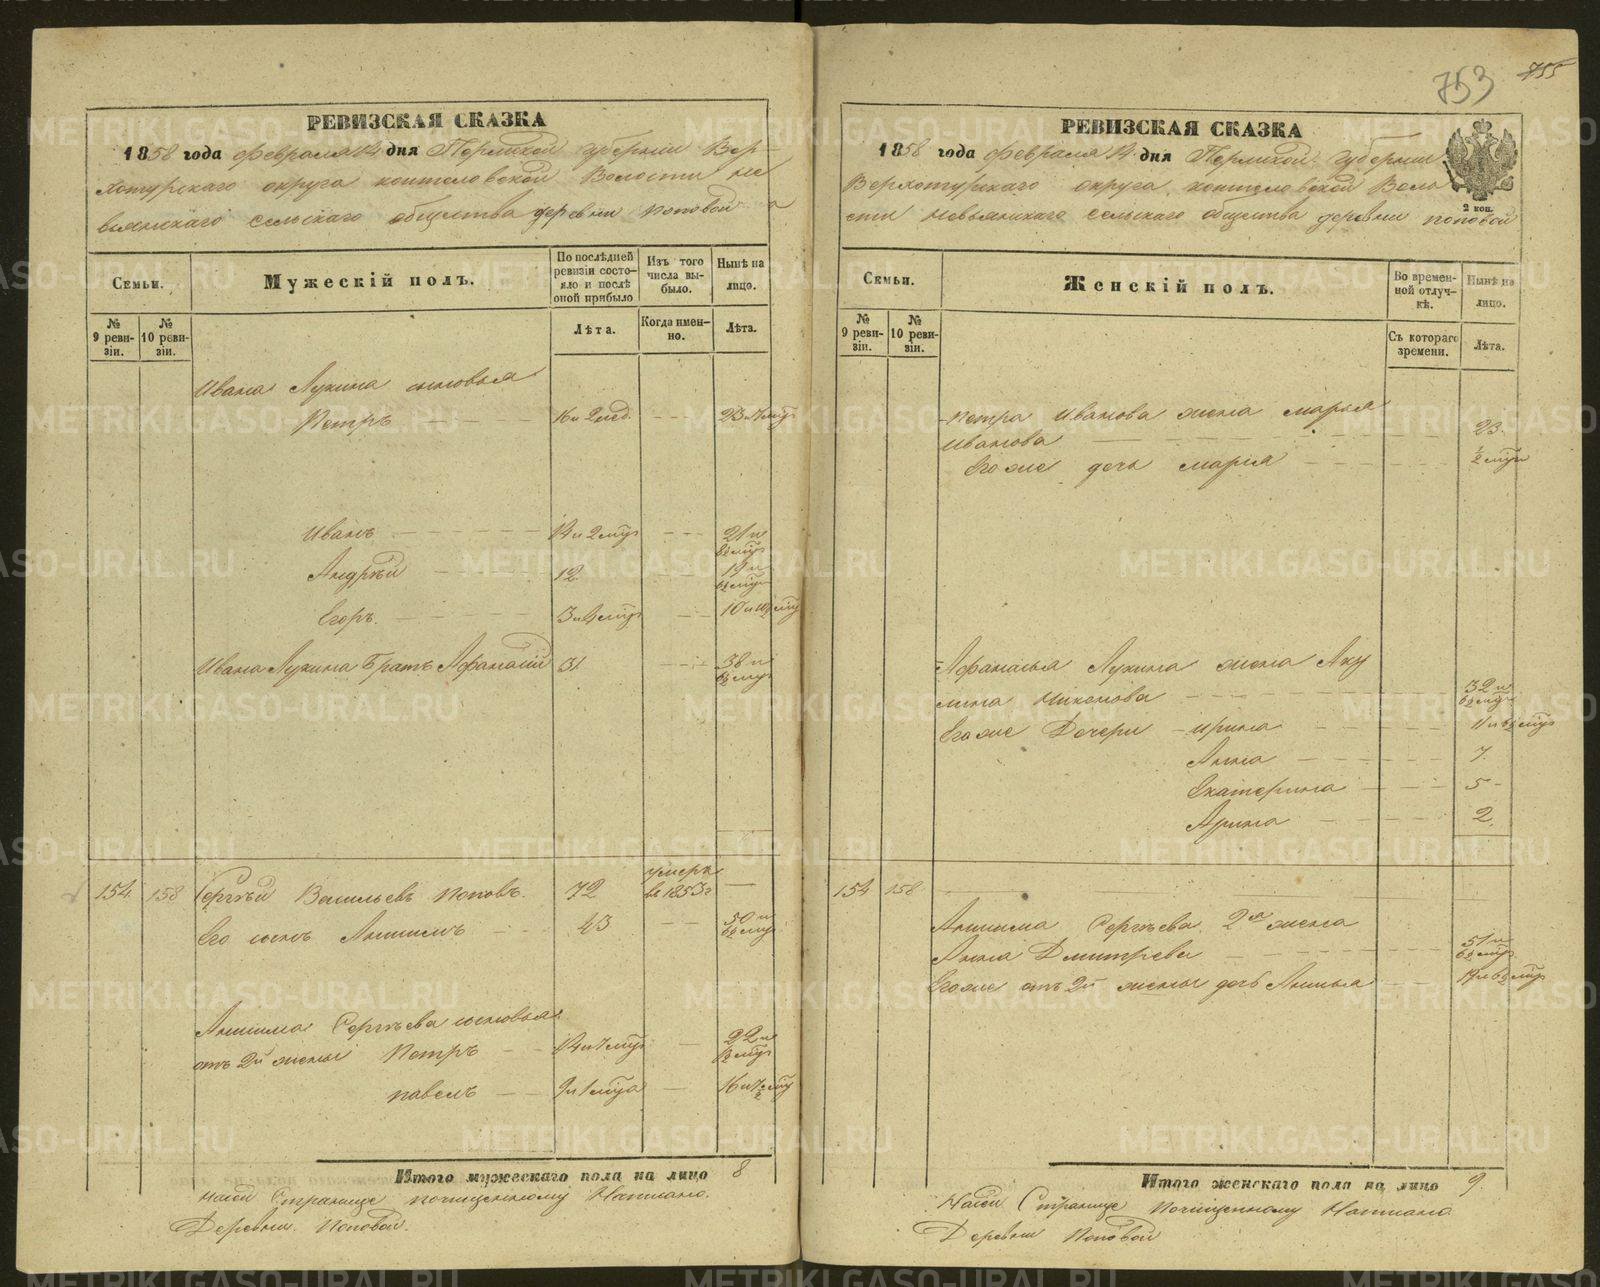 753
755
РЕВИЗСКАЯ СКАЗКА
1858 года февраля 14 дня Пермской Губернии Вер-
хотурскаго округа коптеловской Волости не
вьянскаго сельскаго общества деревни Поповой
Семьи.
Мужескій полъ.
По послѣдней ревизіи состояло и послѣ оной прибыло
Изъ того числа выбыло.
Нынѣ на лицо.
№ 9 ревизіи.
№ 10 ревизіи.
Лѣта.
Когда именно.
Лѣта.
Ивана Лукина сыновья
Петръ 16 и 2 нед.
Иванъ 14 и 2 мца 21 и
Андрѣй 12 19 и
Егоръ
Ивана Лукина Братъ Афанасій 31 38 и
154 158 Сергѣй Васильевъ Поповъ. 72 умеръ въ 1853 г —
Его сынъ Анисимъ 43 50 и
Анисима Сергѣева сыновья
отъ 2й жены Петръ 14 и 7 мцъ 22 и
павелъ 9 и 1 мца
Итого мужескаго пола на лицо 8
на сей Странице почищенному Написано.
Деревни Поповой.
РЕВИЗСКАЯ СКАЗКА
1858 года февраля 14 дня Пермской Губернии
Верхотурскаго округа коптеловской Воло
сти невьянскаго сельскаго общества деревни поповой
2 коп.
Семьи.
Женскій полъ.
Во временной отлучкѣ.
Нынѣ на лицо.
№ 9 ревизіи.
№ 10 ревизіи.
Съ котораго времени.
Лѣта.
Петра Иванова жена марья
Иванова 23.
Егоже дочь марія ½ мцы
Афанасья Лукина жена Аку
лина Никонова 32 и
Егоже Дочери ирина
Анна 7.
Екатерина 5
Арина 2.
154 158
Анисима Сергѣева 2я жена
Анна Дмитрева 51 и
Егоже отъ 2й жены дочь Анисья
Итого женскаго пола на лицо 9.
На сей Странице Почищенному Написано
Деревни Поповой
METRIKI.GASO-URAL.RU